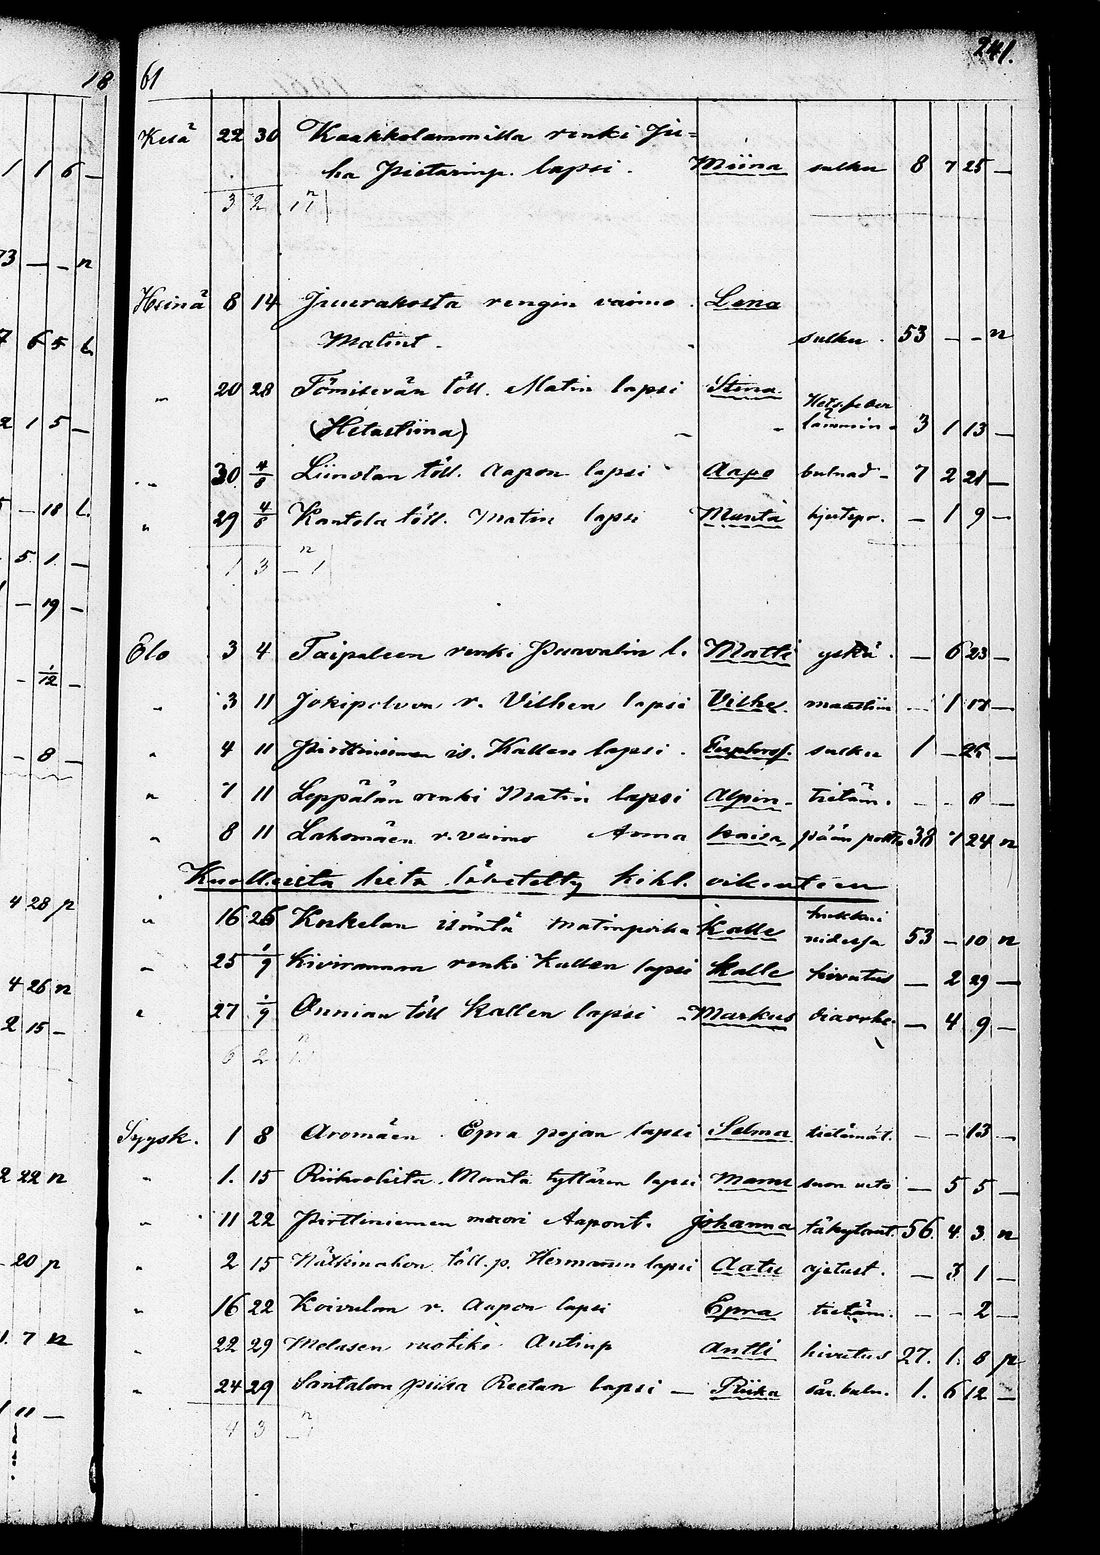 18
1 1 6 —
73 — — n
7 6 5 L
2 1 5 —
5 — 18 L.
5 1. —
19 —
— 1/12 —
— 8 —
4 28 p
4 26 n
2 15 —
2 22 n
— 20 p
1. 7 n
1 11 —
61 241.
Kesä 22 30 Kaakkolammilla renki Ju=
ha Pietarinp. lapsi. Miina sulku 8 7 25 —
3 2 17
Heinä 8 14 Juurakosta rengin vaimo Lena
Matint. sulku 53 — — n
„ 20 28 Tömisevän töll. Matin lapsi Stina
(Hetastiina) lämmin 3 1 13 —
„ 30 4/8 Liinolan töll. Aapon lapsi Aapo bulnad 7 2 21 —
„ 29 4/8 Kantola töll. Matin lapsi Manta hjertspr. — 1 9 —
1 3 — 1
Elo 3 4 Taipaleen renki Paavalin l. Matti yskä. — 6 23 —
„ 3 11 Jokipolven r. Vilhen lapsi Vilhe. — 1 —
„ 4 11 Pirttiniemen is. Kallen lapsi. Euphros. sulku 1 — 26 —
„ 7 11 Leppälän renki Matin lapsi Alpin. tietäm. — — 8 —
„ 8 11 Lahomäen r. vaimo Anna Kaisa pään poltto 38 7 24 n
Kuolleista lista lähetetty kihl. virastoon
„ 16 26 Koskelan isäntä Matinpoika Kalle
53 — 10 n
„ 25 1/9 Kivirannan renki Kallen lapsi Kalle kivutus — 2 29 —
„ 27 1/9 Annian töll Kallen lapsi Markus diarrhe. — 4 9 —
6 2
Syysk. 1 8 Aromäen Epra pojan lapsi Selma tietämät. — — 13 —
„ 1. 15 Manta tyttären lapsi suon veto — 5 5 —
„ 11 22 Pirttiniemen muori Aapont. Johanna 56. 4 3 n
„ 2 15 töll. p. Hermannin lapsi Aatu ajetust. — 3 1 —
„ 16 22 Koivulan r. Aapon lapsi Epra tietäm. — — 2 —
„ 22 29 Melasen ruotiko. Antinp Antti kivutus 27. 1. 8 p
„ 24 29 Santalan piika Reetan lapsi — Riika sår. buln. 1. 6 12 —
4 3